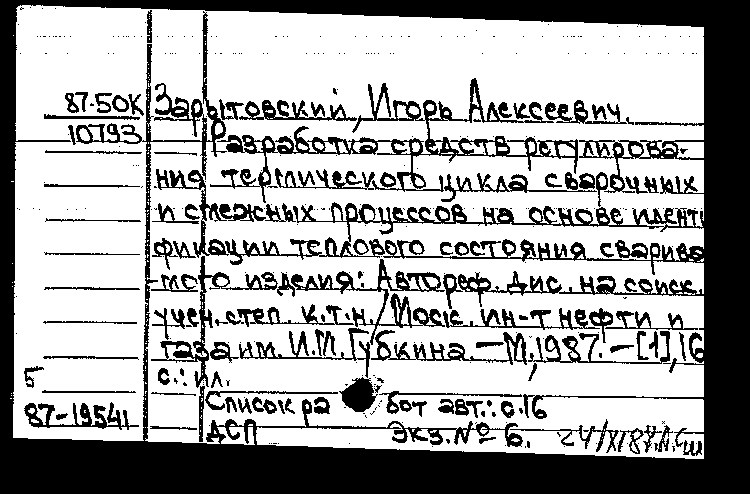 87-50К Зарытовский, Игорь Алексеевич.
10793 Разработка средств регулирова-
ния термического цикла сварочных
и смежных процессов на основе иденти
фикации теплового состояния сварива
мого изделия: Автореф. дис. на соиск.
учен. степ. к.т.н. / Моск. ин-т нефти и
газа им. И.М. Губкина. — М., 1987. — [1], 16
с.: ил.
Б
Список ра бот авт.: с. 16
87-19541
ДСП Экз. № Б. 24/XI 87.